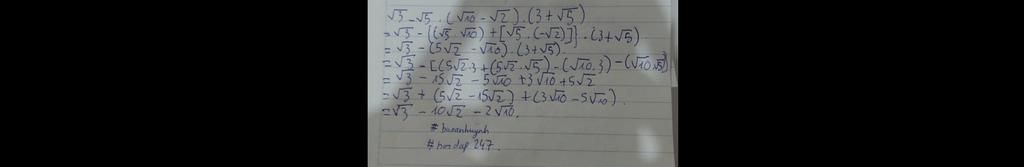 √3 - √5 . (√10 - √2) . (3 + √5)
= √3 - {(√5 . √10) + [√5 . (-√2)]} . (3 + √5)
= √3 - (5√2 - √10) . (3 + √5).
= √3 - [(5√2 . 3 + (5√2 . √5) - (√10 . 3) - (√10 . √5)]
= √3 - 15√2 - 5√10 + 3√10 + 5√2
= √3 + (5√2 - 15√2) + (3√10 - 5√10).
= √3 - 10√2 - 2√10.
# bananhuynh
# hoidap 247.